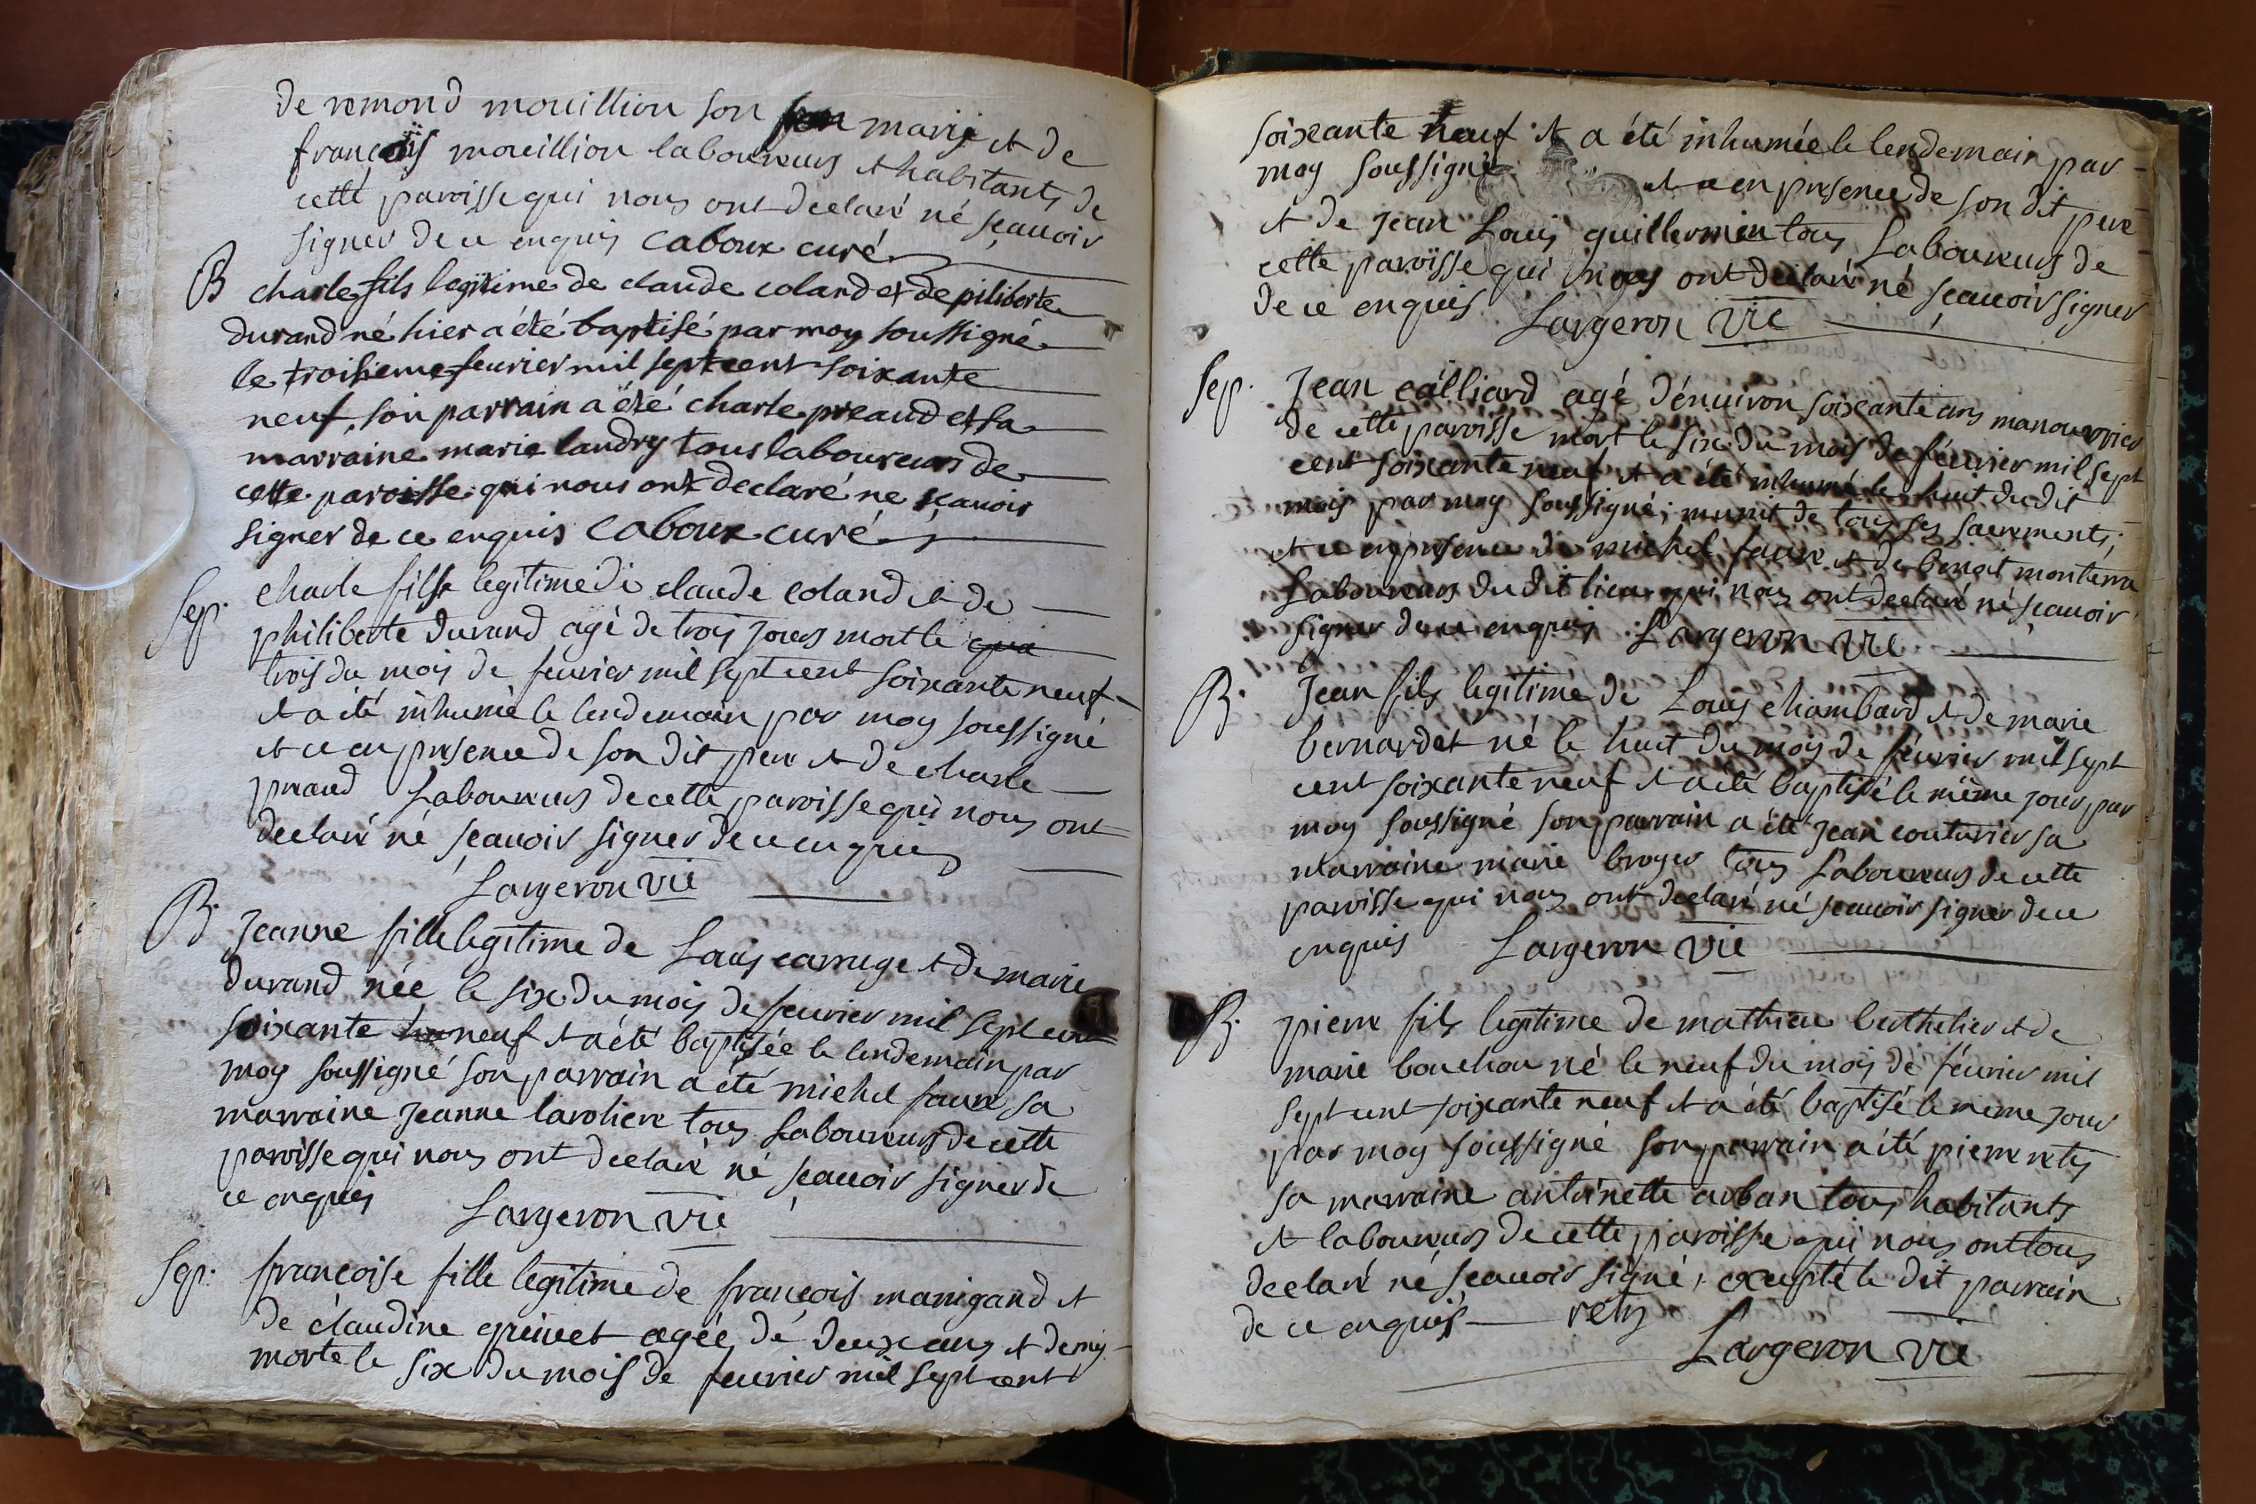 de remond mouillion son mary et de
françois mouillion laboureurs et habitants de
cette paroisse qui nous ont declaré né sçauoir
signer de ce enquis caboux curé
B charle fils legitime de claude coland et de piliberte
durand né hier a été baptisé par moy soussigné
le troisieme feurier mil sept cent soixante
neuf son parrain a été charle preaud et sa
marraine marie landry tous laboureurs de
cette paroisse qui nous ont declaré ne scauoir
signer de ce enquis caboux curé
Sep. charle fils legitime de claude coland et de
philiberte durand agé de trois jours mort le qua
trois du mois de feurier mil sept cent soixante neuf
et a été inhumé le lendemain par moy soussigné
et ce en presence de son dit pere et de charle
preaud Laboureurs de cette paroisse qui nous ont
declaré né sçauoir signer de ce enquis
Largeron vic
B. Jeanne fille legitime de Louis carruge et de marie
durand née le six du mois de feurier mil sept cent
soixante neuf et a été baptisée le lendemain par
moy soussigné son parrain a été michel faure sa
marraine jeanne laroliere tous Laboureurs de cette
paroisse qui nous ont declaré né sçauoir signer de
ce enquis Largeron vic
Sep. françoise fille legitime de françois manigand et
de claudine griuet agée de deux ans et demy
morte le six du mois de feurier mil sept cent
soixante neuf et a été inhumée le lendemain par
moy soussigné et ce en presence de son dit pere
et de jean Louis guillermin tous Laboureurs de
cette paroisse qui nous ont declaré né sçauoir signer
de ce enquis Largeron vic
Sep. Jean cailliard agé d'enuiron soixante ans manouvrier
de cette paroisse mort le six du mois de féurier mil sept
cent soixante neuf et a été inhumé le huit du dit
mois par moy soussigné, munit de tous ses sacrements,
et ce en presence de michel faure et de benoit monterra
Laboureurs du dit lieu qui nous ont declaré né sçauoir
signer de ce enquis Largeron vic
B. Jean fils legitime de Louis chambard et de marie
bernardet né le huit du mois de féurier mil sept
cent soixante neuf et a été baptisé le même jour par
moy soussigné son parrain a été jean couturier sa
marraine marie broyer tous Laboureurs de cette
paroisse qui nous ont declaré né sçauoir signer de ce
enquis Largeron vic
B. pierre fils legitime de mathieu berthelier et de
marie bouchou né le neuf du mois de féurier mil
sept cent soixante neuf et a été baptisé le meme jour
par moy soussigné son parrain a été pierre retz
sa marraine antoinette auban tous habitants
et laboureurs de cette paroisse qui nous ont tous
declaré né sçauoir signé, excepté le dit parrain
de ce enquis retz
Largeron vic